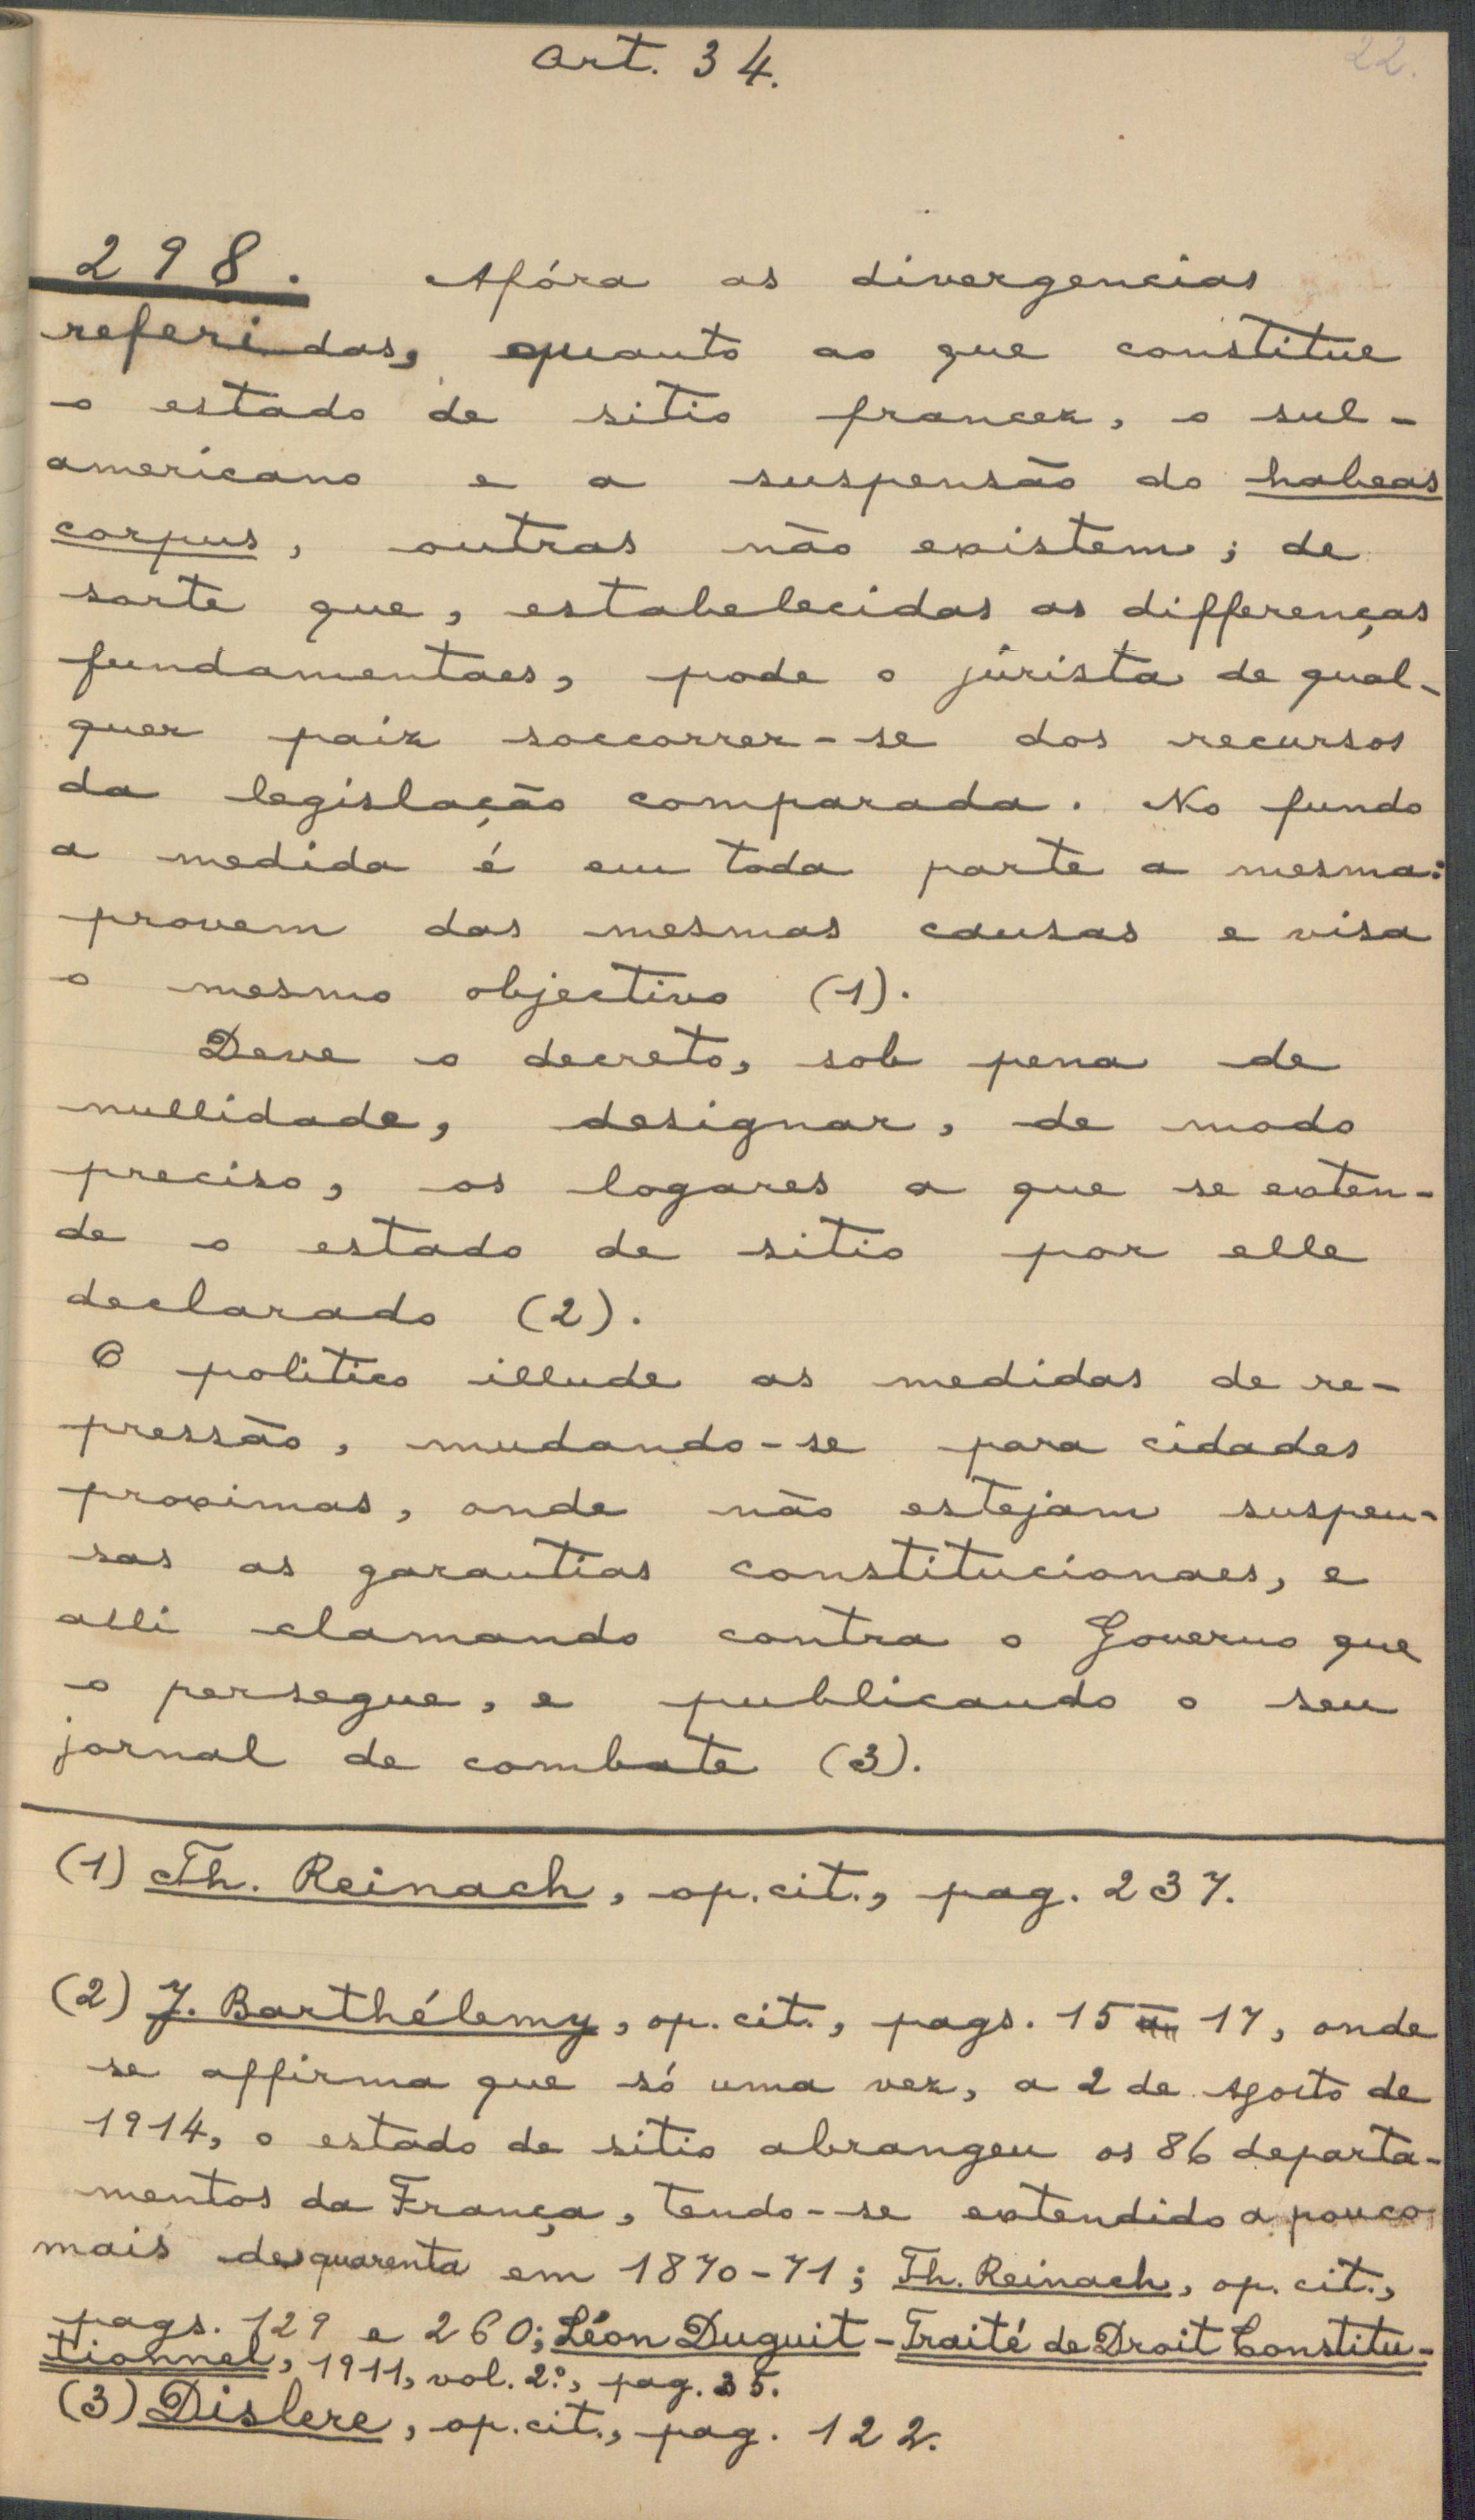 Art. 34.
22.
298. Afóra as divergencias
referidas, quanto ao que constitue
o estado de sitio francez, o sul-
americano e a suspensão do habeas
corpus, outras não existem; de
sorte que, estabelecidas as differenças
fundamentaes, pode o jurista de qual-
quer paiz soccorrer-se dos recursos
da legislação comparada. No fundo
a medida é em toda parte a mesma:
provem das mesmas causas e visa
o mesmo objectivo (1).
Deve o decreto, sob pena de
nullidade, designar, de modo
preciso, os logares a que se exten-
de o estado de sitio por elle
declarado (2).
O politico illude as medidas de re-
pressão, mudando-se para cidades
proximas, onde não estejam suspen-
sas as garantias constitucionaes, e
alli clamando contra o Governo que
o persegue, e publicando o seu
jornal de combate (3).
(1) Th. Reinach, op. cit., pag. 237.
(2) J. Barthélemy, op. cit., pags. 15 a 17, onde
se affirma que só uma vez, a 2 de Agosto de
1914, o estado de sitio abrangeu os 86 departa-
mentos da França, tendo-se extendido a pouco
mais de quarenta em 1870-71; Th. Reinach, op. cit.,
pags. 129 e 260; Léon Duguit - Traité de Droit Constitu-
tionnel, 1911, vol. 2º, pag. 35.
(3) Dislere, op. cit., pag. 122.